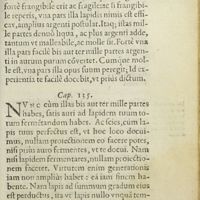 fortè frangibile erit ac fragile: si frangibi-
le reperis, vna pars illi lapidis nimis est effi-
cax, amplius argenti postulat. Itaq; istas mil-
le partes denuò liqua, ac plus argenti adde,
tantum vt malleabile, ac molle sit. Fortè vna
illa pars facile bis aut ter mille partes argen-
ti in aurum purum couertet. Cumque mol-
le est, vna illa pars opus suum peregit: Id ex-
perientia te facilè docebit, vt prius dictum.
Cap. 135.
NVNC cùm illas bis aut ter mille partes
habes, satis auri ad lapidem tuum to-
tum fermētandum habes. At scies, cùm la-
pis tum perfectus est, vt hoc loco docui-
mus, nullam proiectionem eo facere potes,
nisi priùs auro fermentes, vt te docui. Nam
nisi lapidem fermentares, nullam proiectio-
nem faceret. Virtutem enim generationis
iam non ampliùs habet: ea iam finem
habente. Nam lapis ad summum gradum eius
est perductus, ita vt lapis nullo vnquā tem-